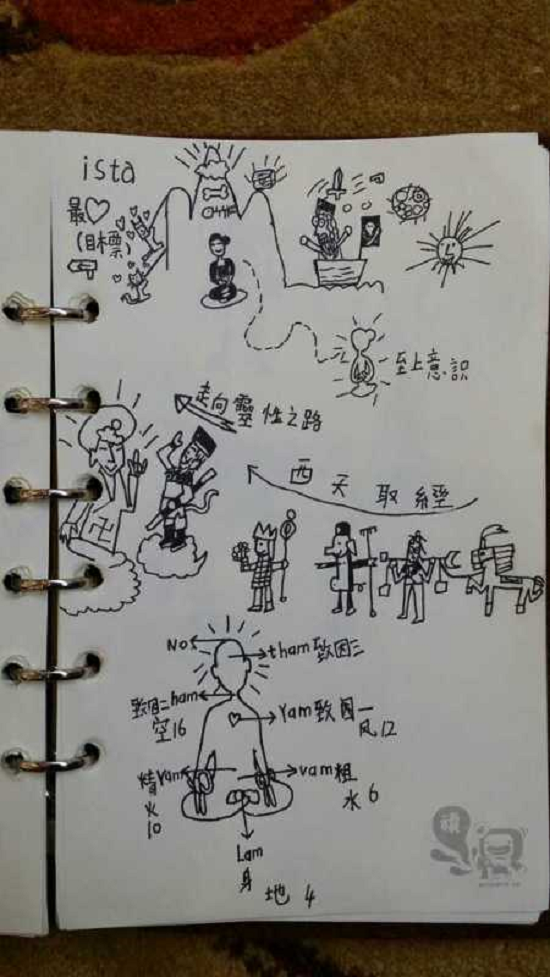 ista
最♡
(目標)
至上意識
走向靈性之路
西天取經
卍
No
tham 致因三
致因二 ham
空16
Yam 致因一
风12
精 ram
火
10
vam 粗
水 6
Lam
身
地 4